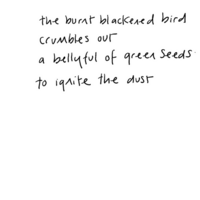 the burnt blackened bird
crumbles out
a bellyful of green seeds
to ignite the dust